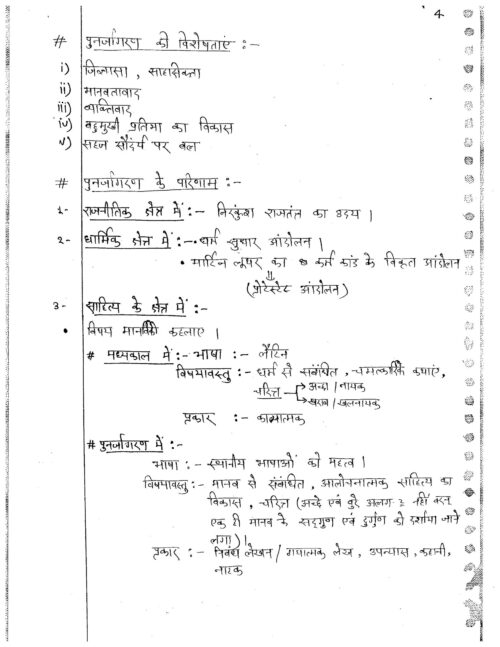 4
# पुनर्जागरण की विशेषताएं :-
i) जिज्ञासा , साहसिकता
ii) मानवतावाद
iii) व्यक्तिवाद
iv) बहुमुखी प्रतिभा का विकास
v) सहज सौंदर्य पर बल
# पुनर्जागरण के परिणाम :-
1- राजनीतिक क्षेत्र में :- निरंकुश राजतंत्र का उदय ।
2- धार्मिक क्षेत्र में :- • धर्म सुधार आंदोलन ।
• मार्टिन लूथर का कर्म कांड के विकृत आंदोलन
⇓
(प्रोटेस्टेंट आंदोलन)
3- साहित्य के क्षेत्र में :-
• विषय मानविकी कहलाए ।
# मध्यकाल में :- भाषा :- लैटिन
विषयवस्तु :- धर्म से संबंधित , चमत्कारिक कथाएं,
चरित्र → अच्छा / नायक
→ खराब / खलनायक
प्रकार :- काव्यात्मक
# पुनर्जागरण में :-
भाषा :- स्थानीय भाषाओं को महत्व ।
विषयवस्तु :- मानव से संबंधित , आलोचनात्मक साहित्य का
विकास , चरित्र (अच्छे एवं बुरे अलग २ नहीं वरन्
एक ही मानव के सद्गुण एवं दुर्गुण को दर्शाया जाने
लगा) ।
प्रकार :- निबंध लेखन / गद्यात्मक लेख , उपन्यास , कहानी,
नाटक